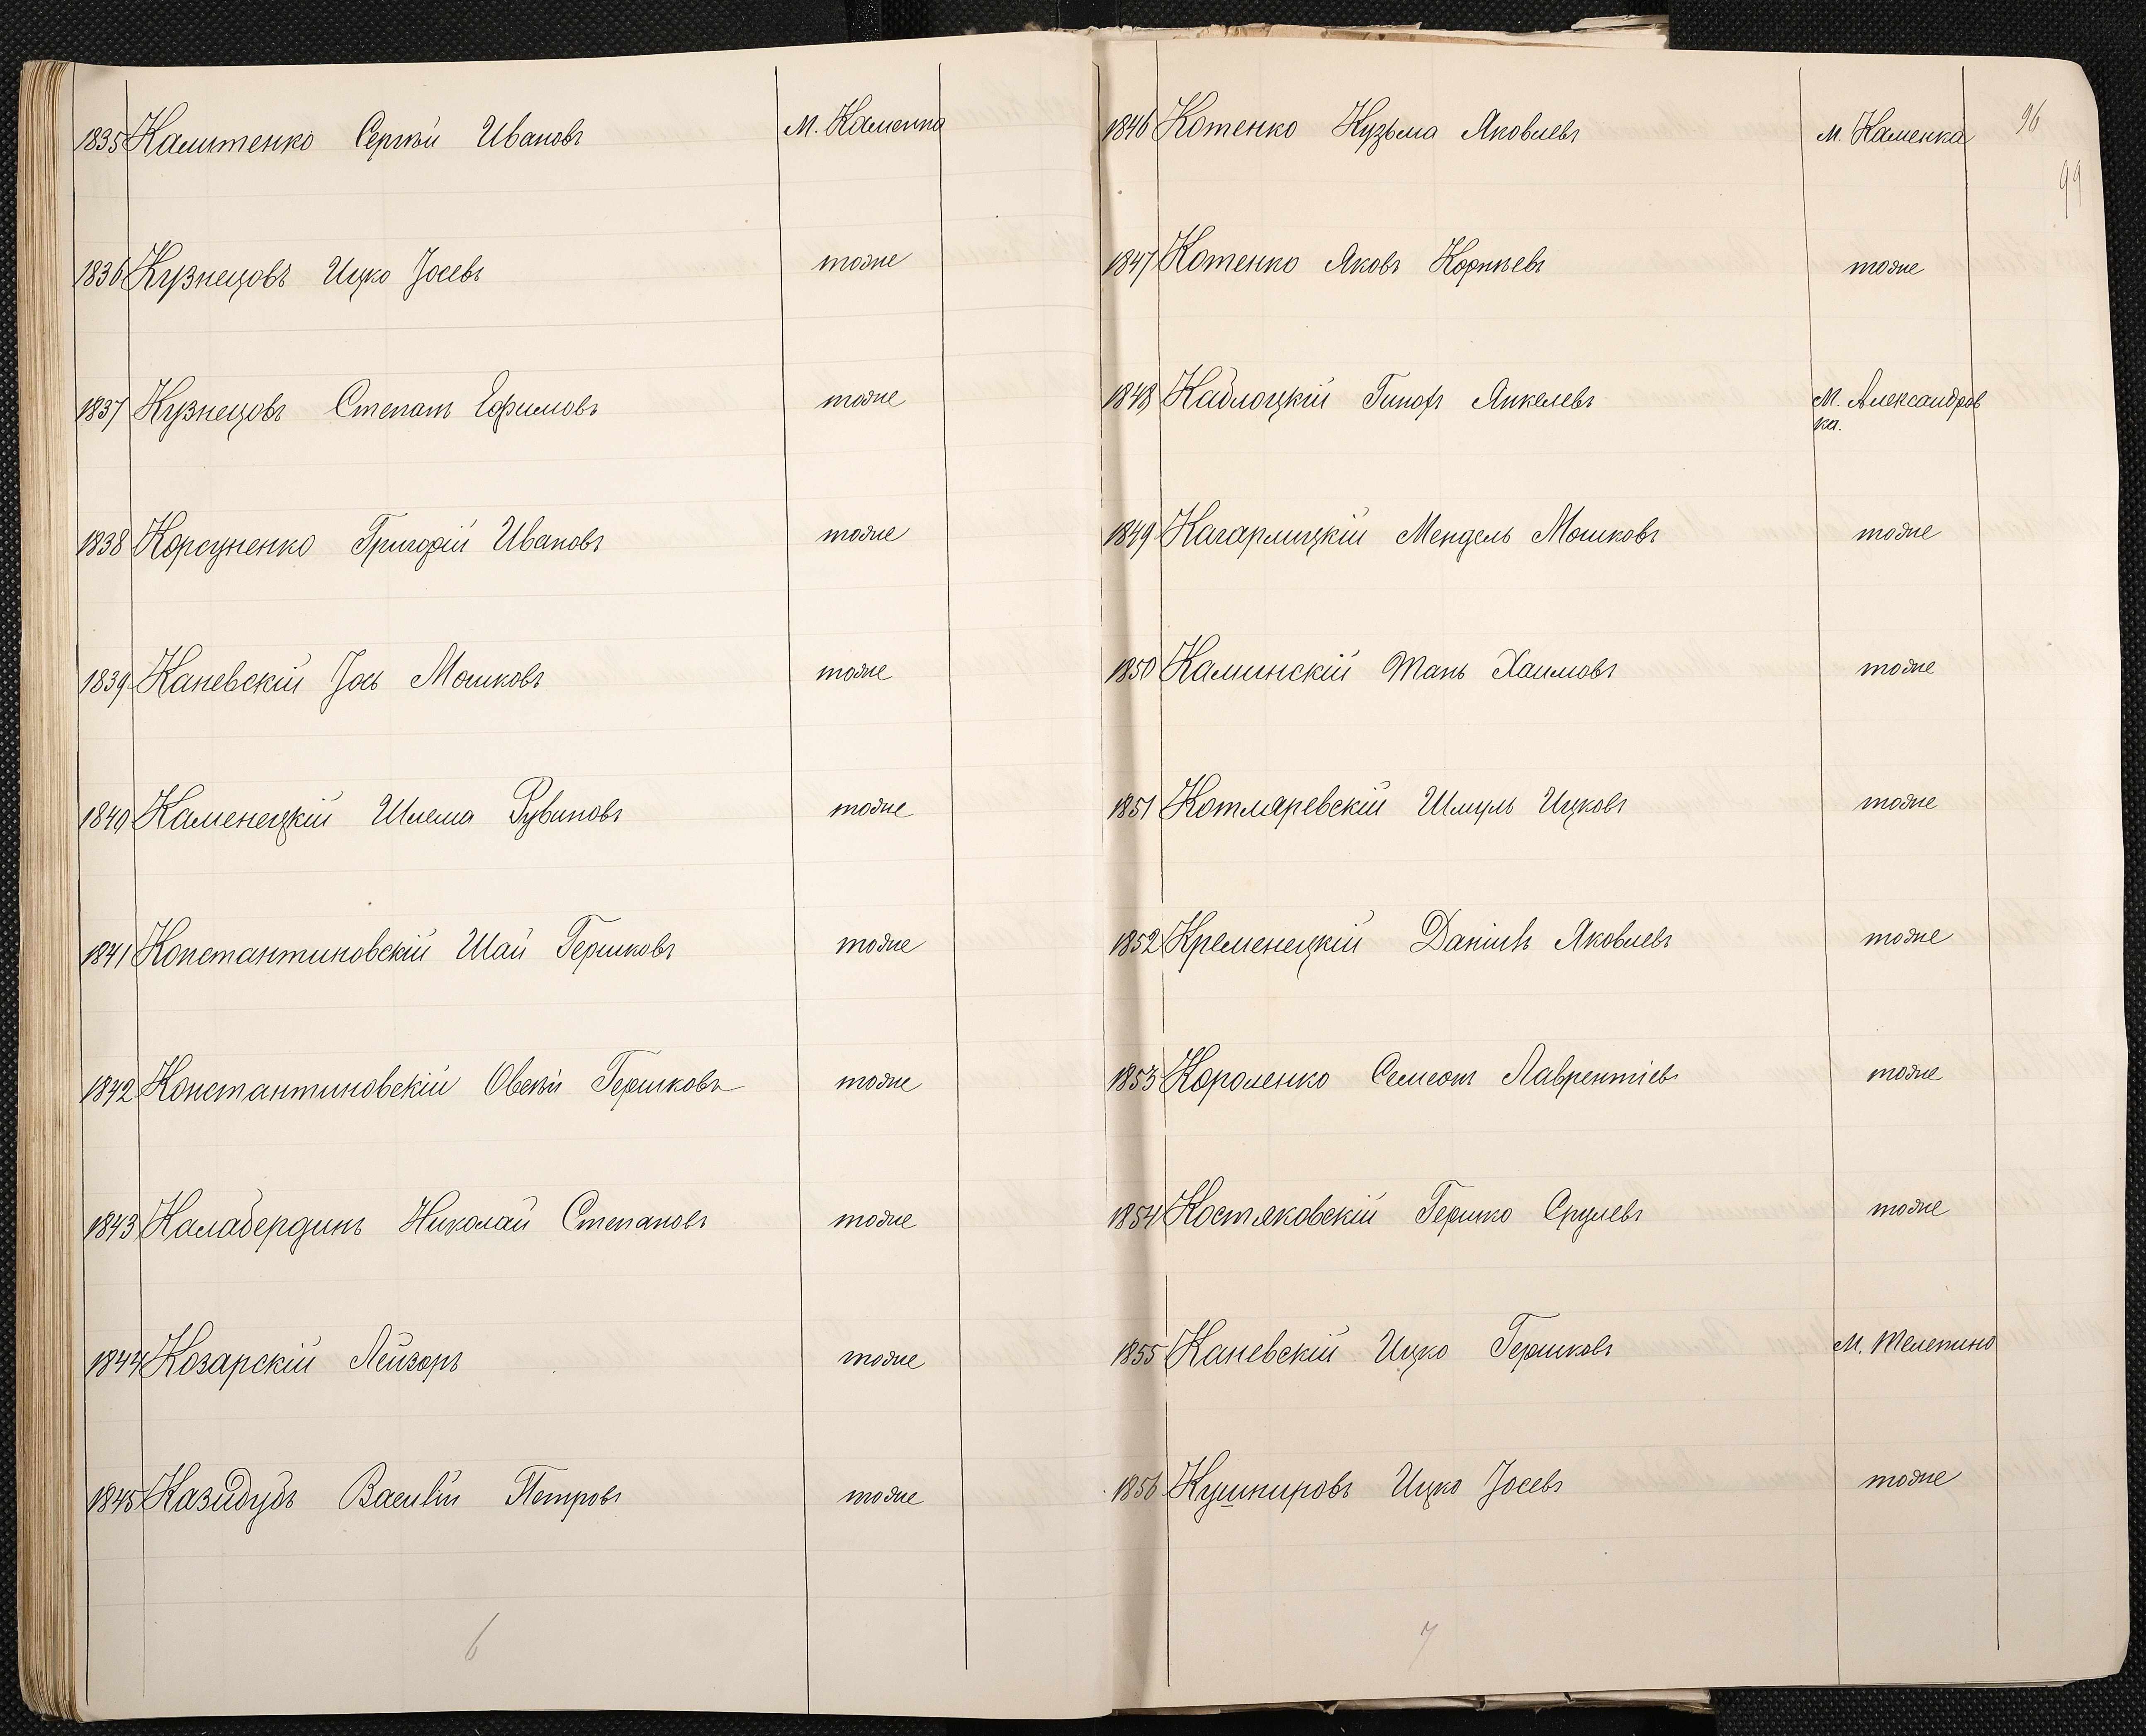 1835 Калитенко Сергѣй Ивановъ М. Каменка
1836 Кузнецовъ Ицко Іосевъ тоже
1837 Кузнецовъ Степанъ Ефимовъ тоже
1838 Корсуненко Григорій Ивановъ тоже
1839 Каневскій Іось Мошковъ тоже
1840 Каменецкій Шлема Рувиновъ тоже
1841 Константиновскій Шай Гершковъ тоже
1842 Константиновскій Овсѣй Гершковъ тоже
1843 Калабердинъ Николай Степановъ тоже
1844 Козарскій Лейзоръ тоже
1845 Казидубъ Василій Петровъ тоже
6
96
99
1846 Котенко Кузьма Яковлевъ М. Каменка
1847 Котенко Яковъ Корнѣевъ тоже
1848 Каблоцкій Янкелевъ М. Александров
ка.
1849 Кагарлицкій Мендель Мошковъ тоже
1850 Калинскій Мань Хаимовъ тоже
1851 Котляревскій Шмуль Ицковъ тоже
1852 Кременецкій Даніилъ Яковлевъ тоже
1853 Короленко Семеонъ Лаврентіевъ тоже
1854 Костяковскій Гершко Срулевъ тоже
1855 Каневскій Ицко Гершковъ М. Телепино
1856 Кушнировъ Ицко Іосевъ тоже
7